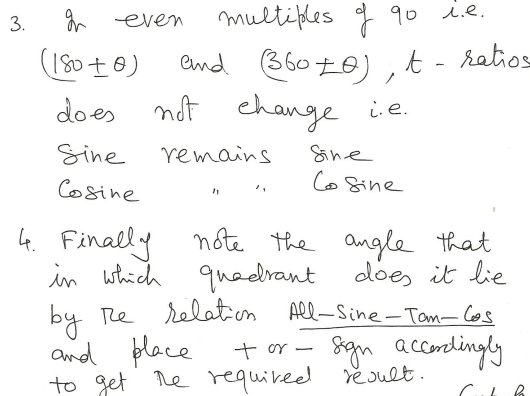 3. In even multiples of 90 i.e.
(180 ± θ) and (360 ± θ), t - ratios
does not change i.e.
Sine remains Sine
Cosine " " Co Sine
4. Finally note the angle that
in which quadrant does it lie
by the relation All-Sine-Tan-Cos
and place + or - sign accordingly
to get the required result.